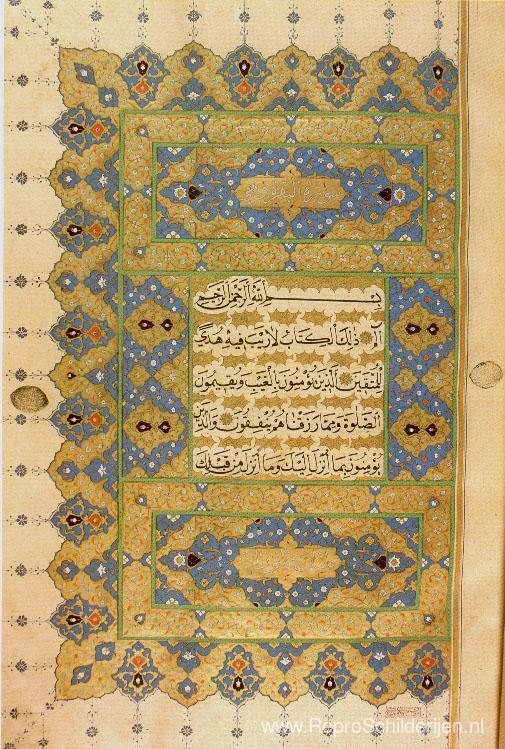 سورة البقرة
بسم الله الرحمن الرحيم
الم ذلك الكتاب لا ريب فيه هدى
للمتقين الذين يؤمنون بالغيب ويقيمون
الصلوة ومما رزقناهم ينفقون والذين
يؤمنون بما انزل اليك وما انزل من قبلك
www.ReproSchilderijen.nl